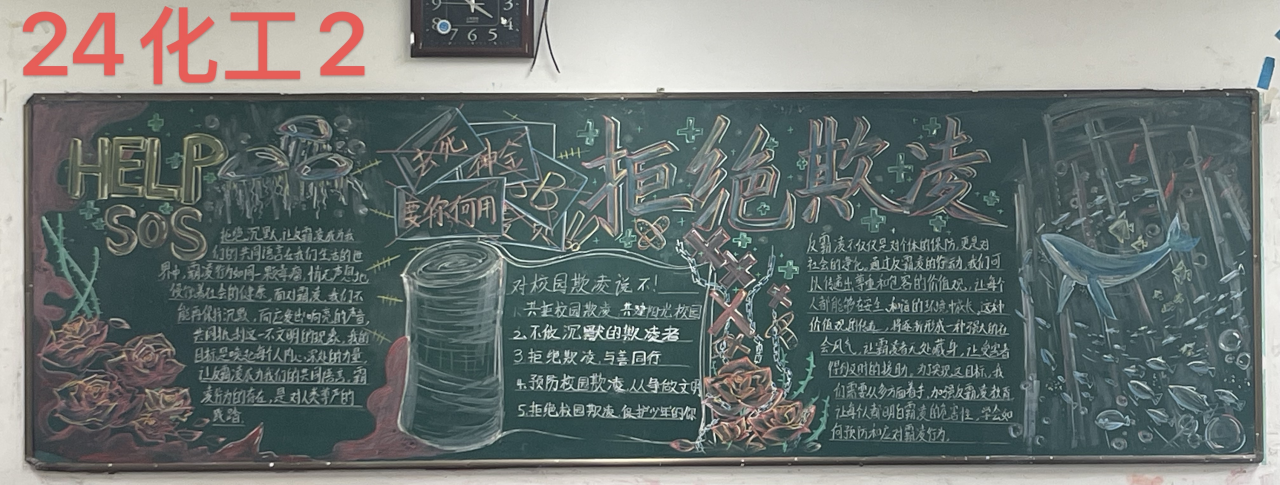 24化工2
9 3
8 7 6 5 4
HELP
SOS
去死
神金
要你何用
SB
拒绝欺凌
拒绝沉默,让反霸凌成为我
们的共同语言在我们生活的世
界中,霸凌行为如同一颗毒瘤,悄无声息地
侵蚀着社会的健康,面对霸凌,我们不
能再保持沉默,而应发出响亮的声音,
共同抵制这一不文明的现象,我的
目标是唤起每个人内心深处的力量
让反霸凌成为我们的共同语言,霸
凌行为的存在,是对人类尊严的
践踏.
对校园欺凌说不!
1.共拒校园欺凌 共建阳光校园
2.不做沉默的欺凌者
3 拒绝欺凌 与善同行
4.预防校园欺凌 从每做文明
5.拒绝校园欺凌 保护少年的你
反霸凌不仅仅是对个体的保护,更是对
社会的净化,通过反霸凌的行动,我们可
以传递出尊重和包容的价值观,让每个
人都能够在安全、和谐的环境中成长,这种
价值观的传递,将逐渐形成一种强大的社
会风气,让霸凌者无处藏身,让受害者
得到及时的援助,为实现这目标,我
们需要从多方面着手,加强反霸凌教育
让每个人都明白霸凌的危害性,学会如
何预防和应对霸凌行为.